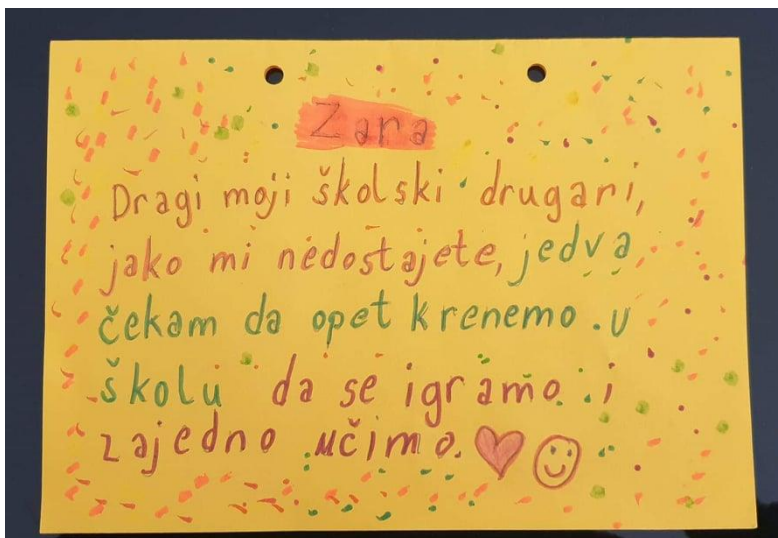 Zara
Dragi moji školski drugari,
jako mi nedostajete, jedva
čekam da opet krenemo u
školu da se igramo i
zajedno učimo.